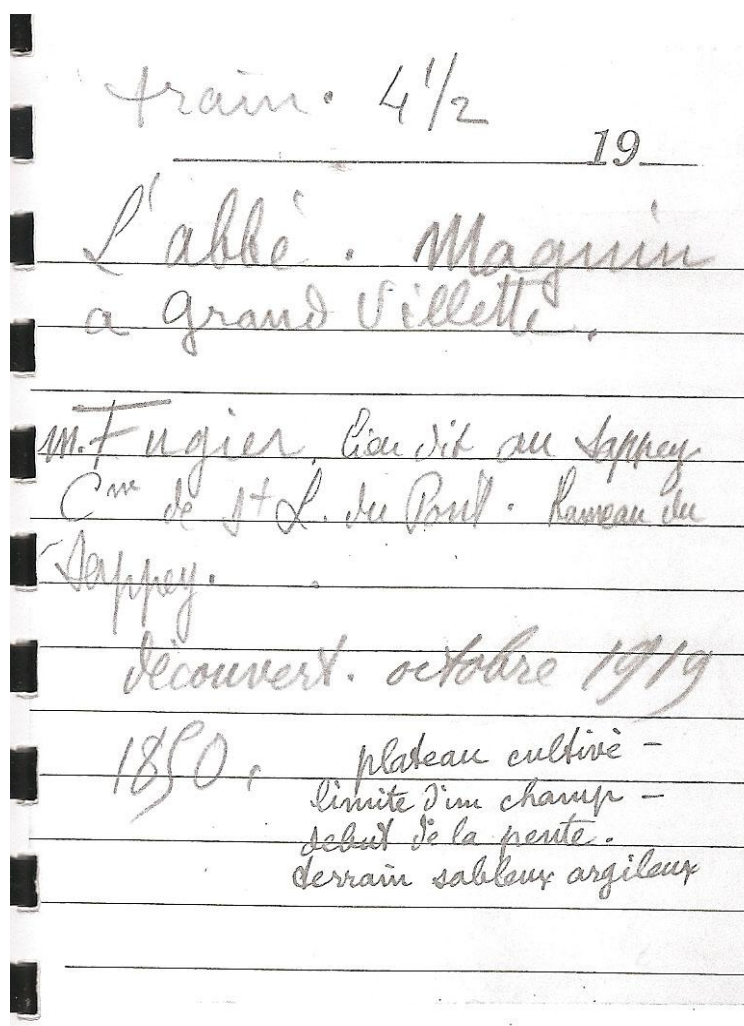 train. 4 1/2
19
L'abbé. Maguin
a grand Villette.
M. Fugier, lieu dit au Sappey
Cne de St L. du Pont. Hameau du
Sappey.
découvert. octobre 1919
1850.
plateau cultivé -
limite d'un champ -
debut de la pente.
terrain sableux argileux